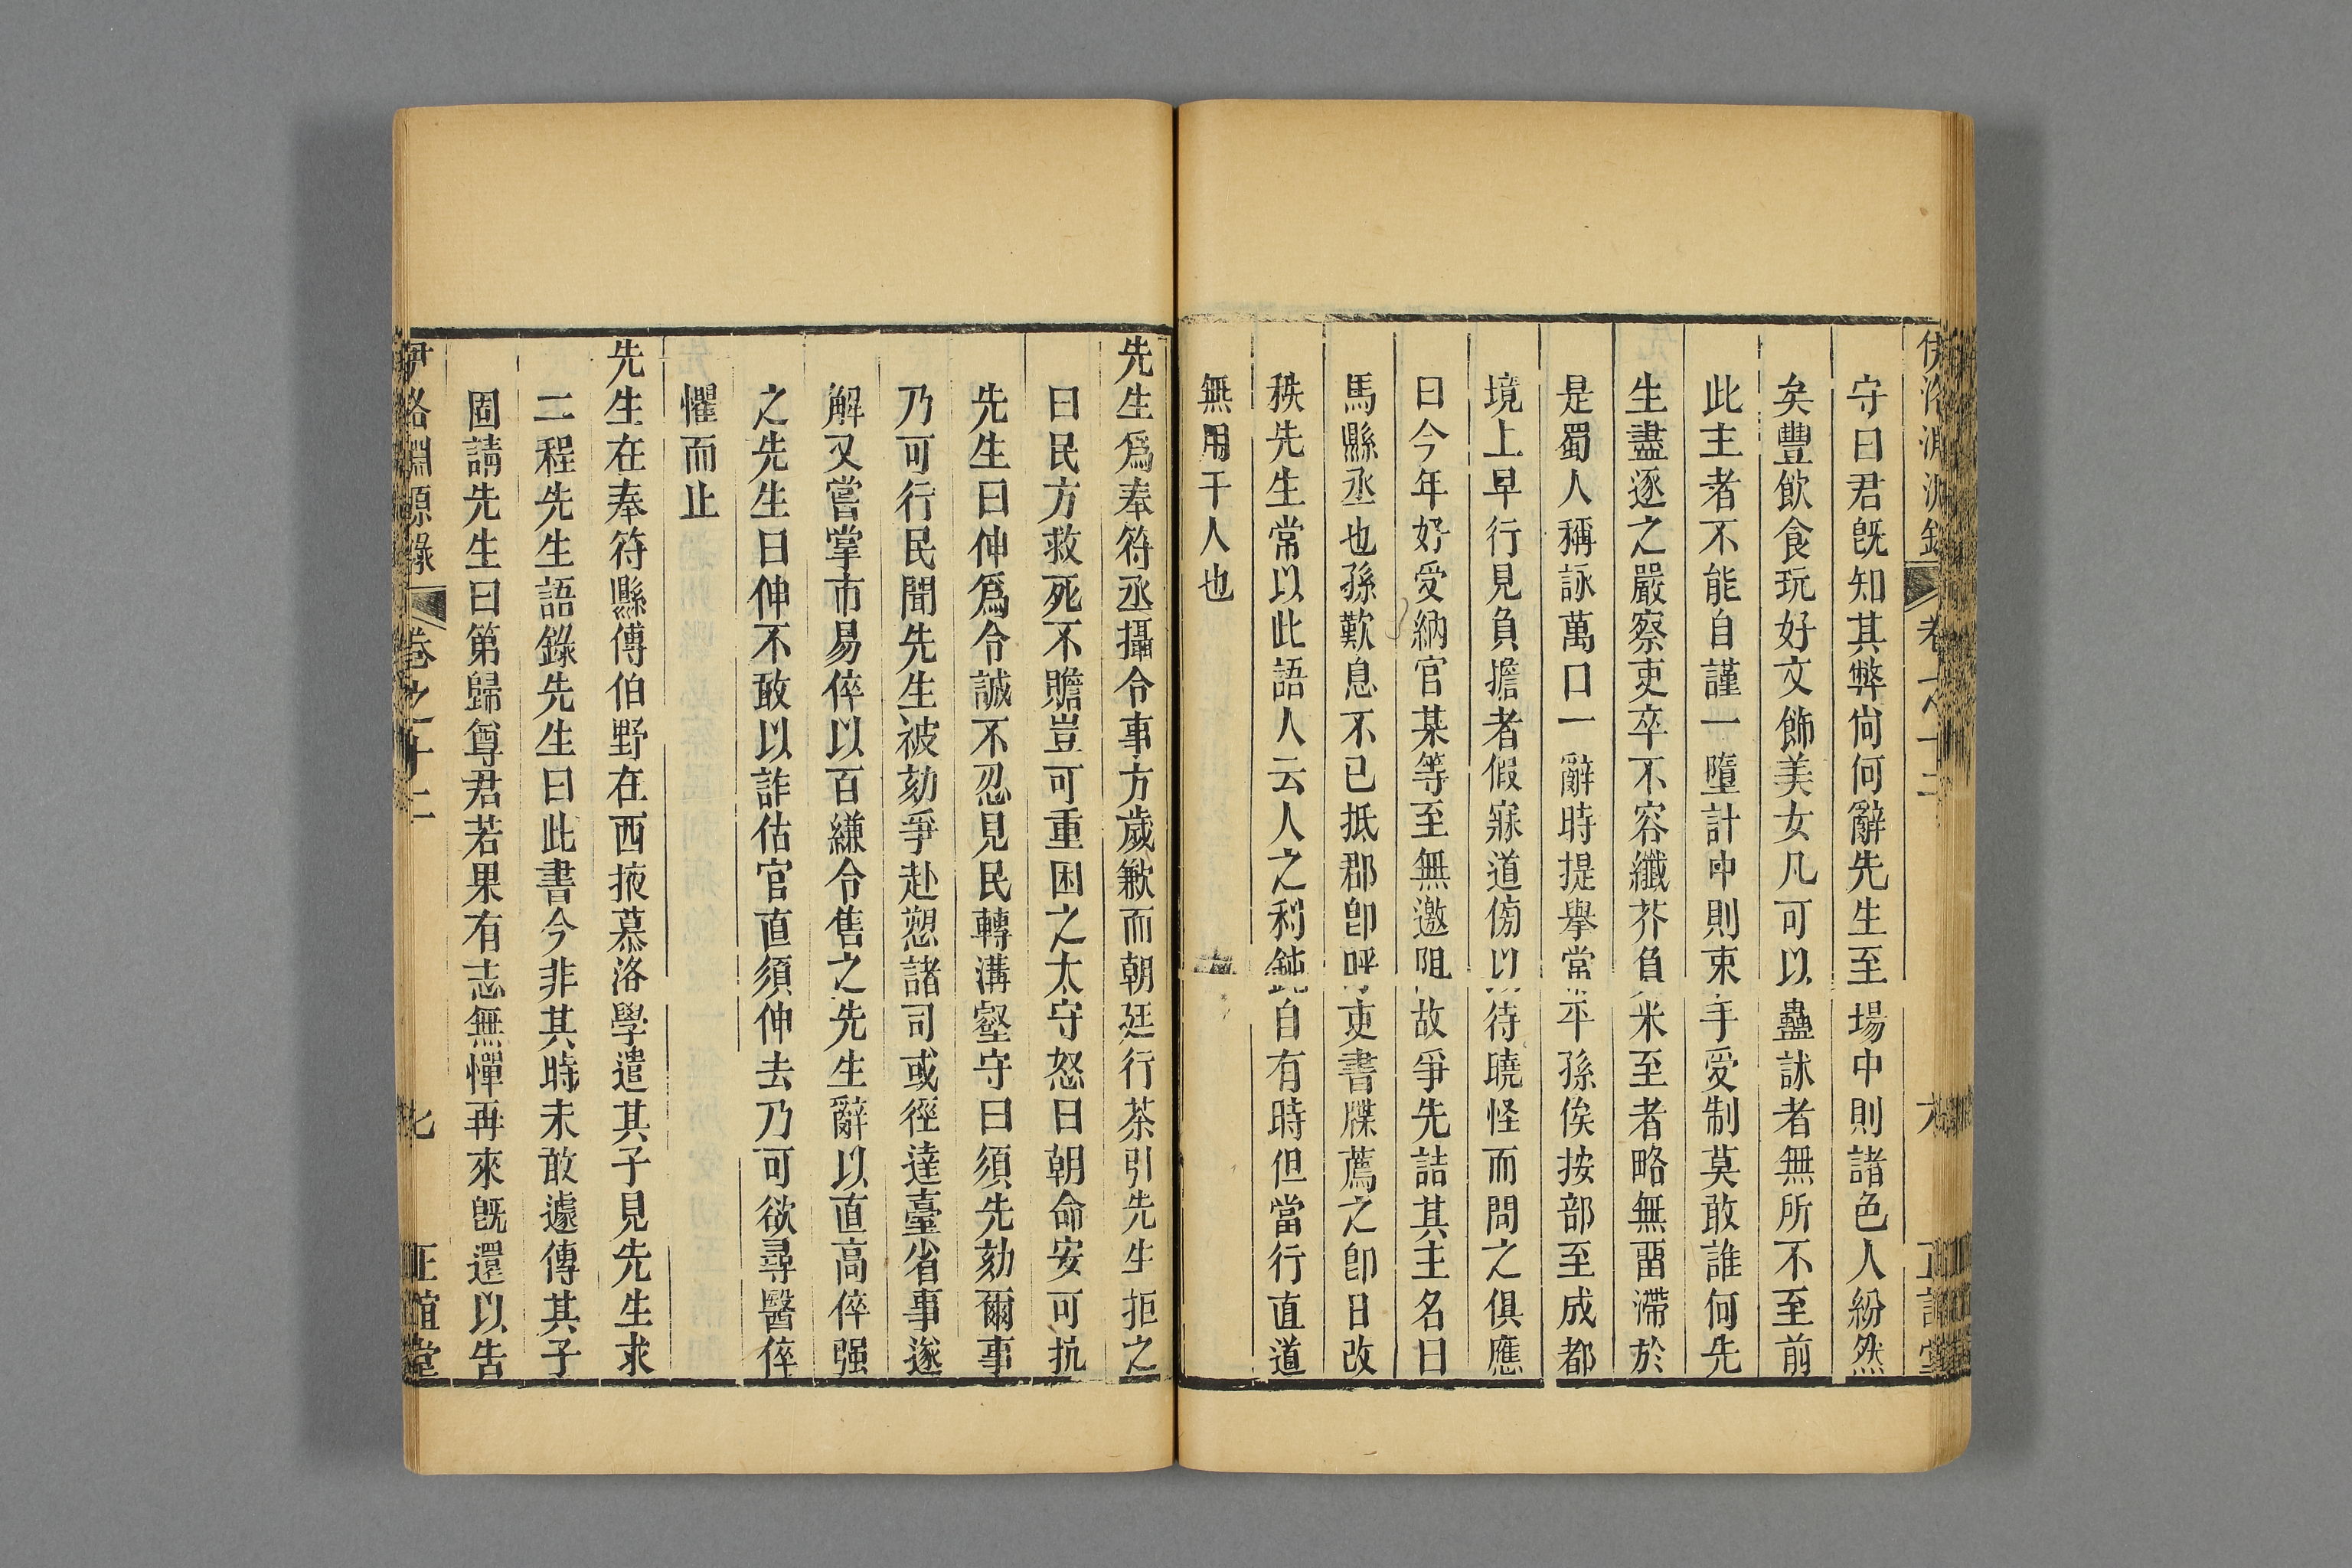 伊洛淵源錄 卷之十二 六 正誼堂
守曰君旣知其弊尙何辭先生至場中則諸色人紛然
矣豐飲食玩好文飾美女凡可以蠱訹者無所不至前
此主者不能自謹一墮計中則束手受制莫敢誰何先
生盡逐之嚴察吏卒不容纖芥負米至者略無畱滯於
是蜀人稱詠萬口一辭時提舉常平孫俟按部至成都
境上早行見負擔者假寐道傍以待曉怪而問之俱應
曰今年好受納官某等至無邀阻故爭先詰其主名曰
馬縣丞也孫歎息不已抵郡卽呼吏書牒薦之卽日改
秩先生常以此語人云人之利鈍自有時但當行直道
無用干人也
先生爲奉符丞攝令事方歲歉而朝廷行茶引先生拒之
曰民方救死不贍豈可重困之太守怒曰朝命安可抗
先生曰伸爲令誠不忍見民轉溝壑守曰須先劾爾事
乃可行民聞先生被劾爭赴愬諸司或徑達臺省事遂
解又嘗掌市易倅以百縑令售之先生辭以直高倅强
之先生曰伸不敢以詐估官直須伸去乃可欲尋醫倅
懼而止
先生在奉符縣傅伯野在西掖慕洛學遣其子見先生求
二程先生語錄先生曰此書今非其時未敢遽傳其子
固請先生曰第歸尊君若果有志無憚再來旣還以告
伊洛淵源錄 卷之十二 七 正誼堂